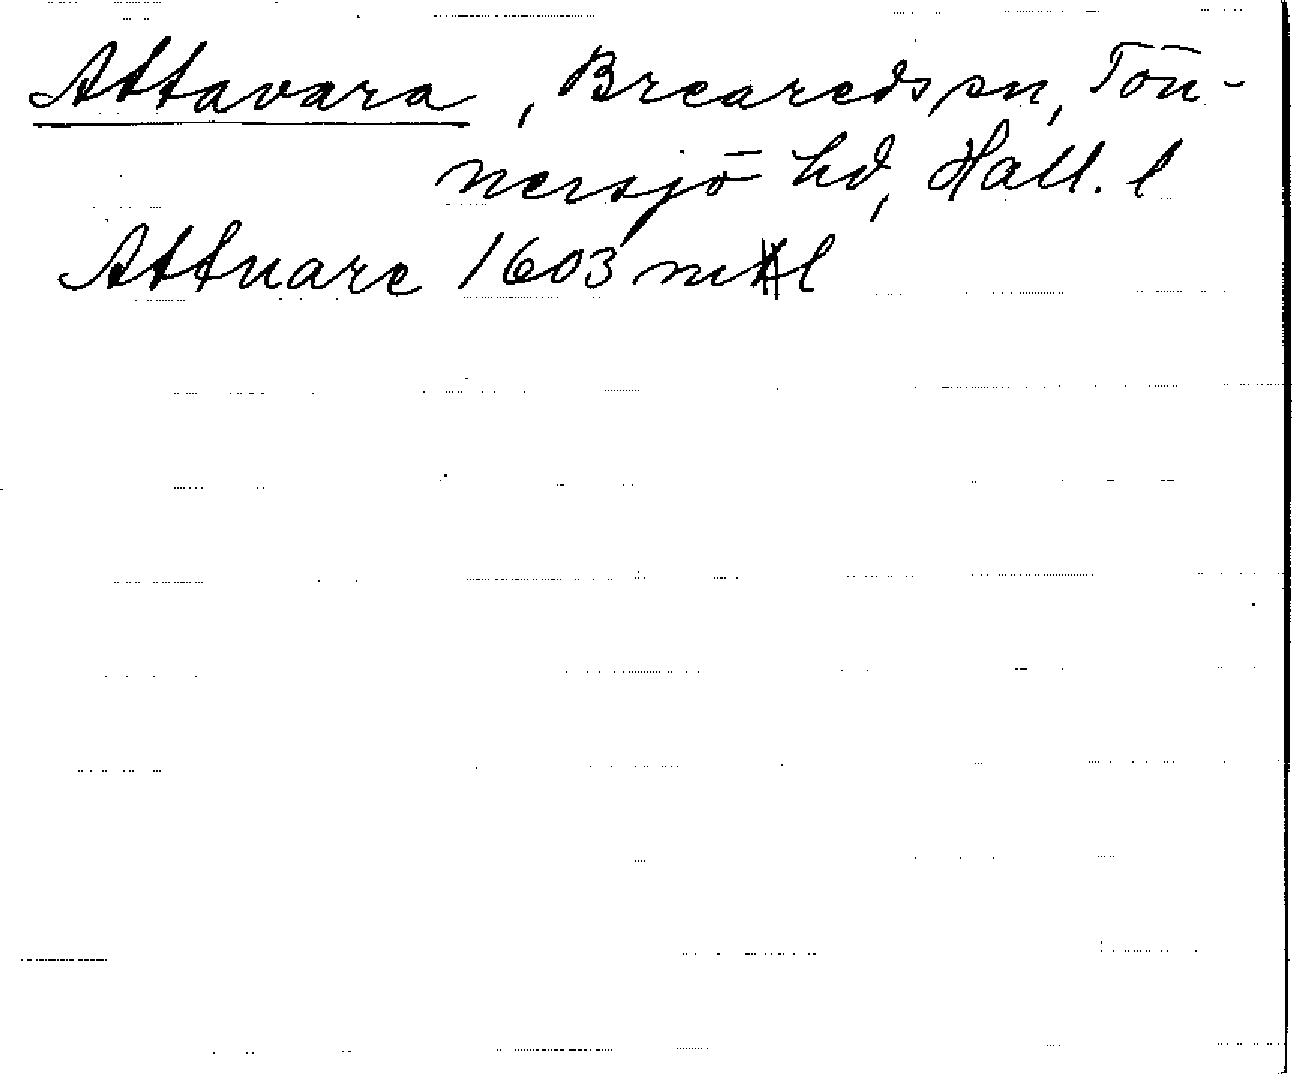 Attavara, Breareds sn, Tön-
nersjö hd, Hall. l
Attuare 1603 mtl